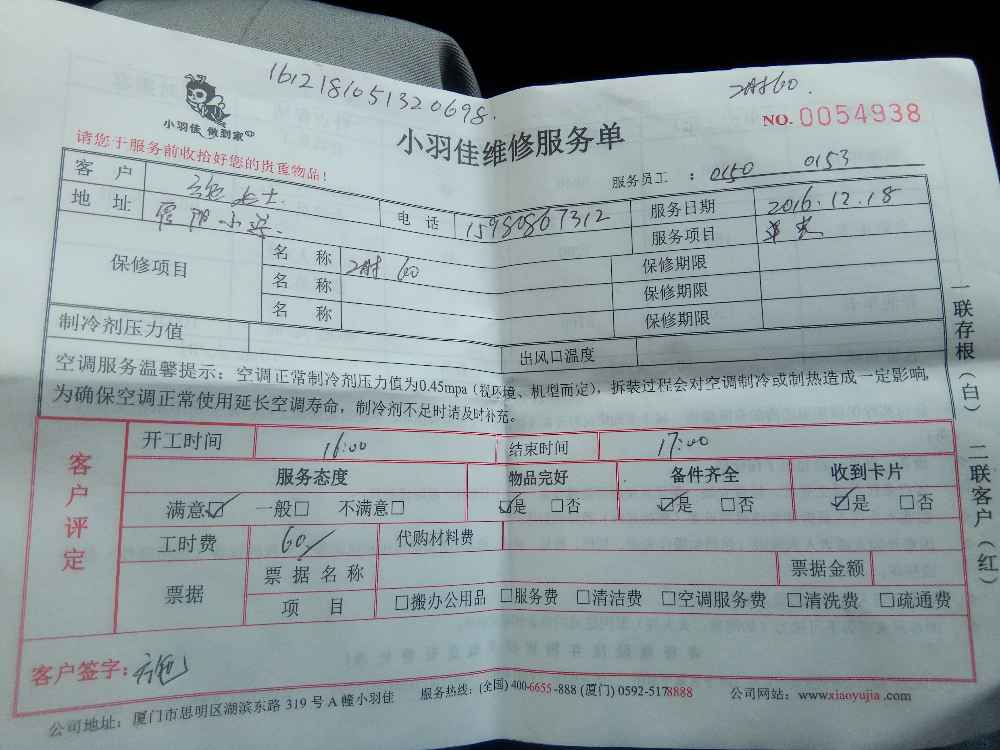 161218105132069​8.
小羽佳 做到家
小羽佳维修服务单
NO. 0054938
请您于服务前收拾好您的贵重物品!
服务员工 : 0150 0153
客 户 女士.
电 话 15980867312
服务日期 2016.12.18
地 址
服务项目
保修项目
名 称 60
保修期限
名 称
保修期限
名 称
保修期限
制冷剂压力值
出风口温度
空调服务温馨提示:空调正常制冷剂压力值为0.45mpa(视环境、机型而定),拆装过程会对空调制冷或制热造成一定影响,
为确保空调正常使用延长空调寿命,制冷剂不足时请及时补充。
一联存根(白) 二联客户(红)
客户评定
开工时间 16:00
结束时间 17:00
服务态度 物品完好 备件齐全 收到卡片
满意☑ 一般□ 不满意□ ☑是 □否 ☑是 □否 ☑是 □否
工时费 60/ 代购材料费
票据
票据名称 票据金额
项 目 □搬办公用品 □服务费 □清洁费 □空调服务费 □清洗费 □疏通费
客户签字: 施
公司地址: 厦门市思明区湖滨东路 319 号 A 幢小羽佳 服务热线: (全国) 400-6655-888 (厦门) 0592-5178888 公司网站: www.xiaoyujia.com